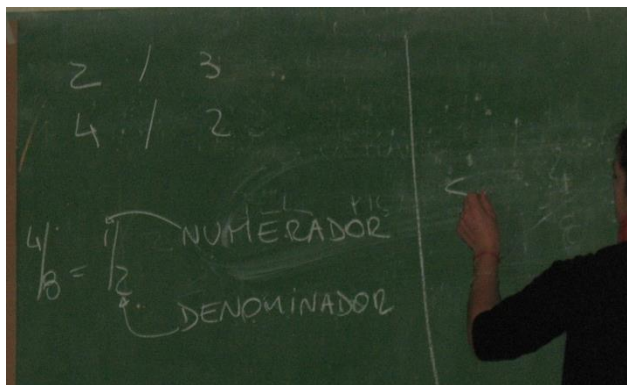 2 / 3
4 / 2
4/8 = 1/2
NUMERADOR
DENOMINADOR
<